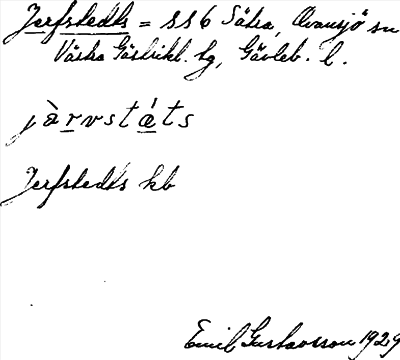 Jerfstedts = ss 6 Sätra, Ovansjö sn
Västra Gästrikl. tg, Gävleb. l.
jàrvstáts
Jerfstedts kb
Emil Gustavsson 1929